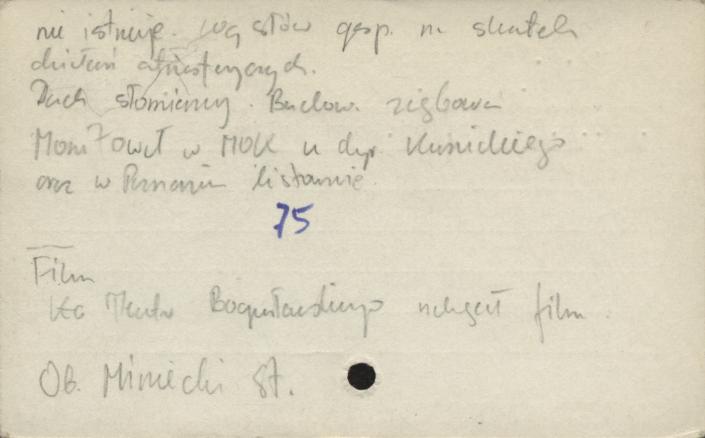 nie istnieje. wg słów gosp. na skutek
działań
Dach słomiany. Budow. zrębowa
w MOK u dyr. Kunickiego
oraz w Poznaniu listownie
75
Film
Teatr Bogusławskiego nakręcił film
Ob. Miniecki St.